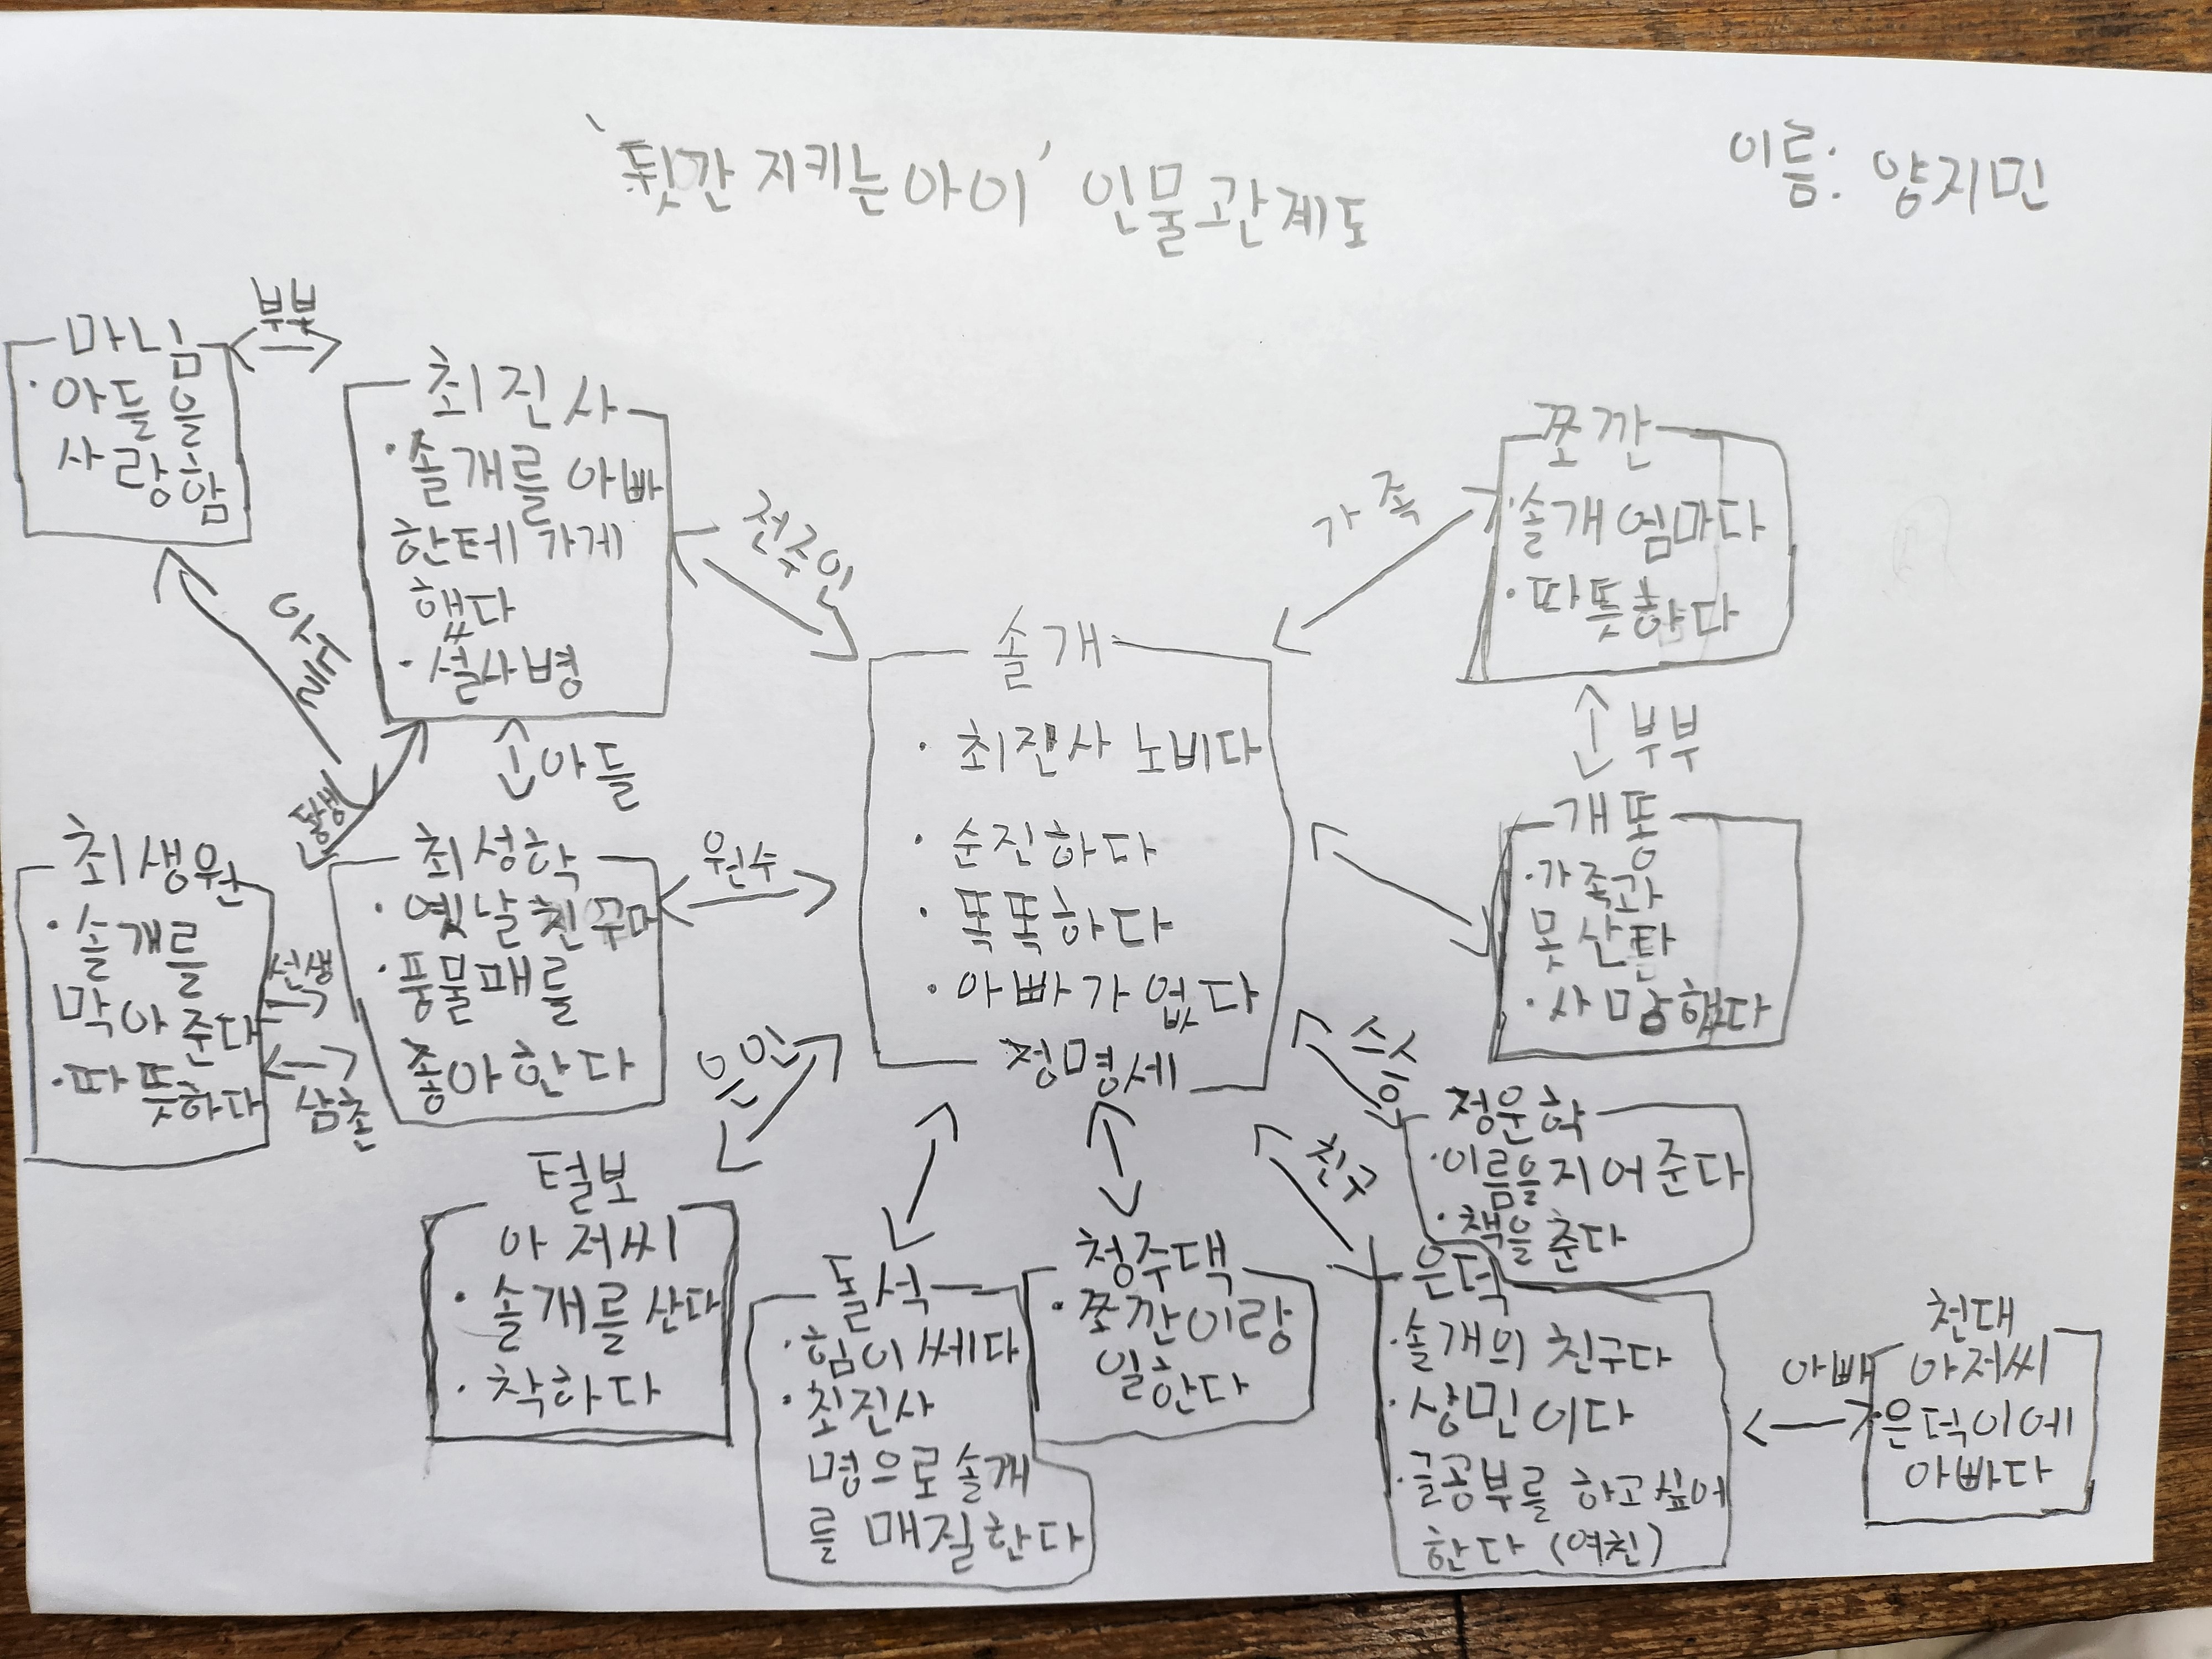 '뒷간 지키는 아이' 인물관계도
이름: 양지민
부부
마님
·아들을
사랑함
최진사
·솔개를 아빠
한테 가게
했다
·설사병
전주인
가족
쪼깐
·솔개 엄마다
·따뜻하다
아들
솔개
·최진사 노비다
·순진하다
·똑똑하다
·아빠가 없다
정명세
아들
부부
개똥
·가족과
못 산다
·사망했다
동생
최생원
·솔개를
막아 준다
·따뜻하다
선생
삼촌
최성학
·옛날 친구
·풍물패를
좋아한다
원수
은인
스승
정운학
·이름을 지어 준다
·책을 준다
친구
털보
아저씨
·솔개를 산다
·착하다
돌석
·힘이 쎄다
·최진사
명으로 솔개
를 매질한다
청주댁
·쪼깐이랑
일한다
은덕
·솔개의 친구다
·상민이다
·글공부를 하고싶어
한다 (여친)
아빠
천대
아저씨
·은덕이에
아빠다